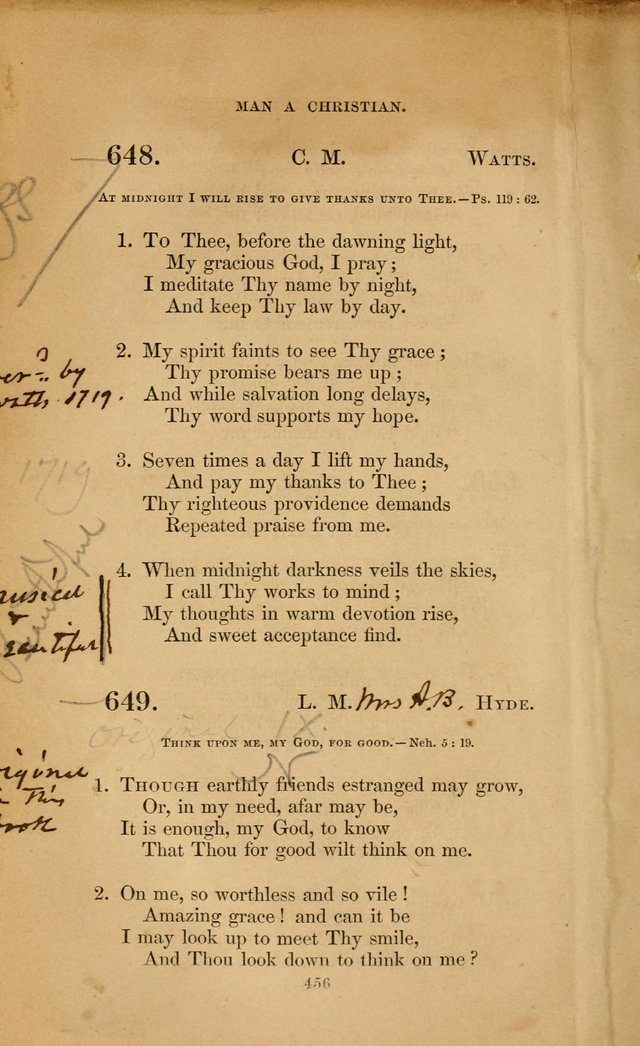 MAN A CHRISTIAN.
648. C. M. WATTS.
AT MIDNIGHT I WILL RISE TO GIVE THANKS UNTO THEE.—Ps. 119 : 62.
1. To Thee, before the dawning light,
My gracious God, I pray;
I meditate Thy name by night,
And keep Thy law by day.
2. My spirit faints to see Thy grace;
Thy promise bears me up;
by
And while salvation long delays,
1719.
Thy word supports my hope.
3. Seven times a day I lift my hands,
1719
And pay my thanks to Thee;
Thy righteous providence demands
Repeated praise from me.
4. When midnight darkness veils the skies,
I call Thy works to mind;
My thoughts in warm devotion rise,
And sweet acceptance find.
649. L. M. Mrs A.B. HYDE.
THINK UPON ME, MY GOD, FOR GOOD.—Neh. 5 : 19.
1. THOUGH earthly friends estranged may grow,
Or, in my need, afar may be,
It is enough, my God, to know
That Thou for good wilt think on me.
2. On me, so worthless and so vile!
Amazing grace! and can it be
I may look up to meet Thy smile,
And Thou look down to think on me?
456